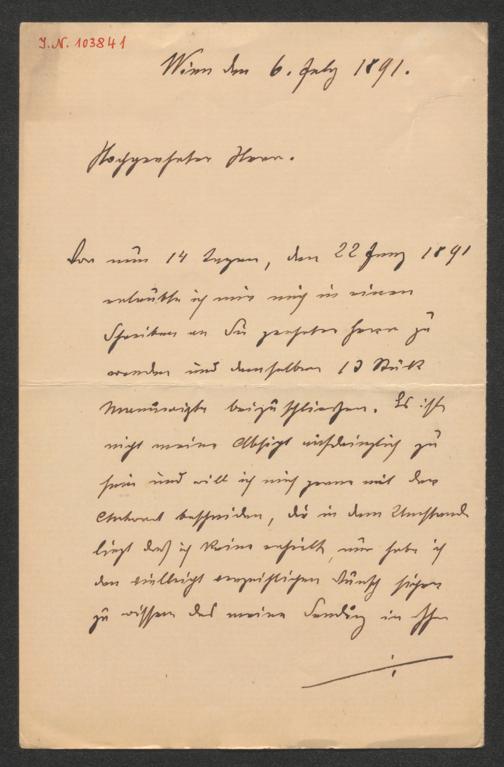 J.N. 103841
Wien den 6. July 1891.
Hochgeehrter Herr.
Vor nun 14 Tagen, den 22 Juny 1891
erlaubte ich mir mich in einem
Schreiben an Sie geehrter Herr zu
wenden und demselben 13 Stük
Manuscripte beizuschließen. Es ist
nicht meine Absicht aufdringlich zu
sein und will ich mich gerne mit der
Antwort bescheiden, die in dem Umstande
liegt daß ich keine erhielt, nur habe ich
den vielleicht verzeihlichen Wunsch sicher
zu wissen das meine Sendung in Ihre